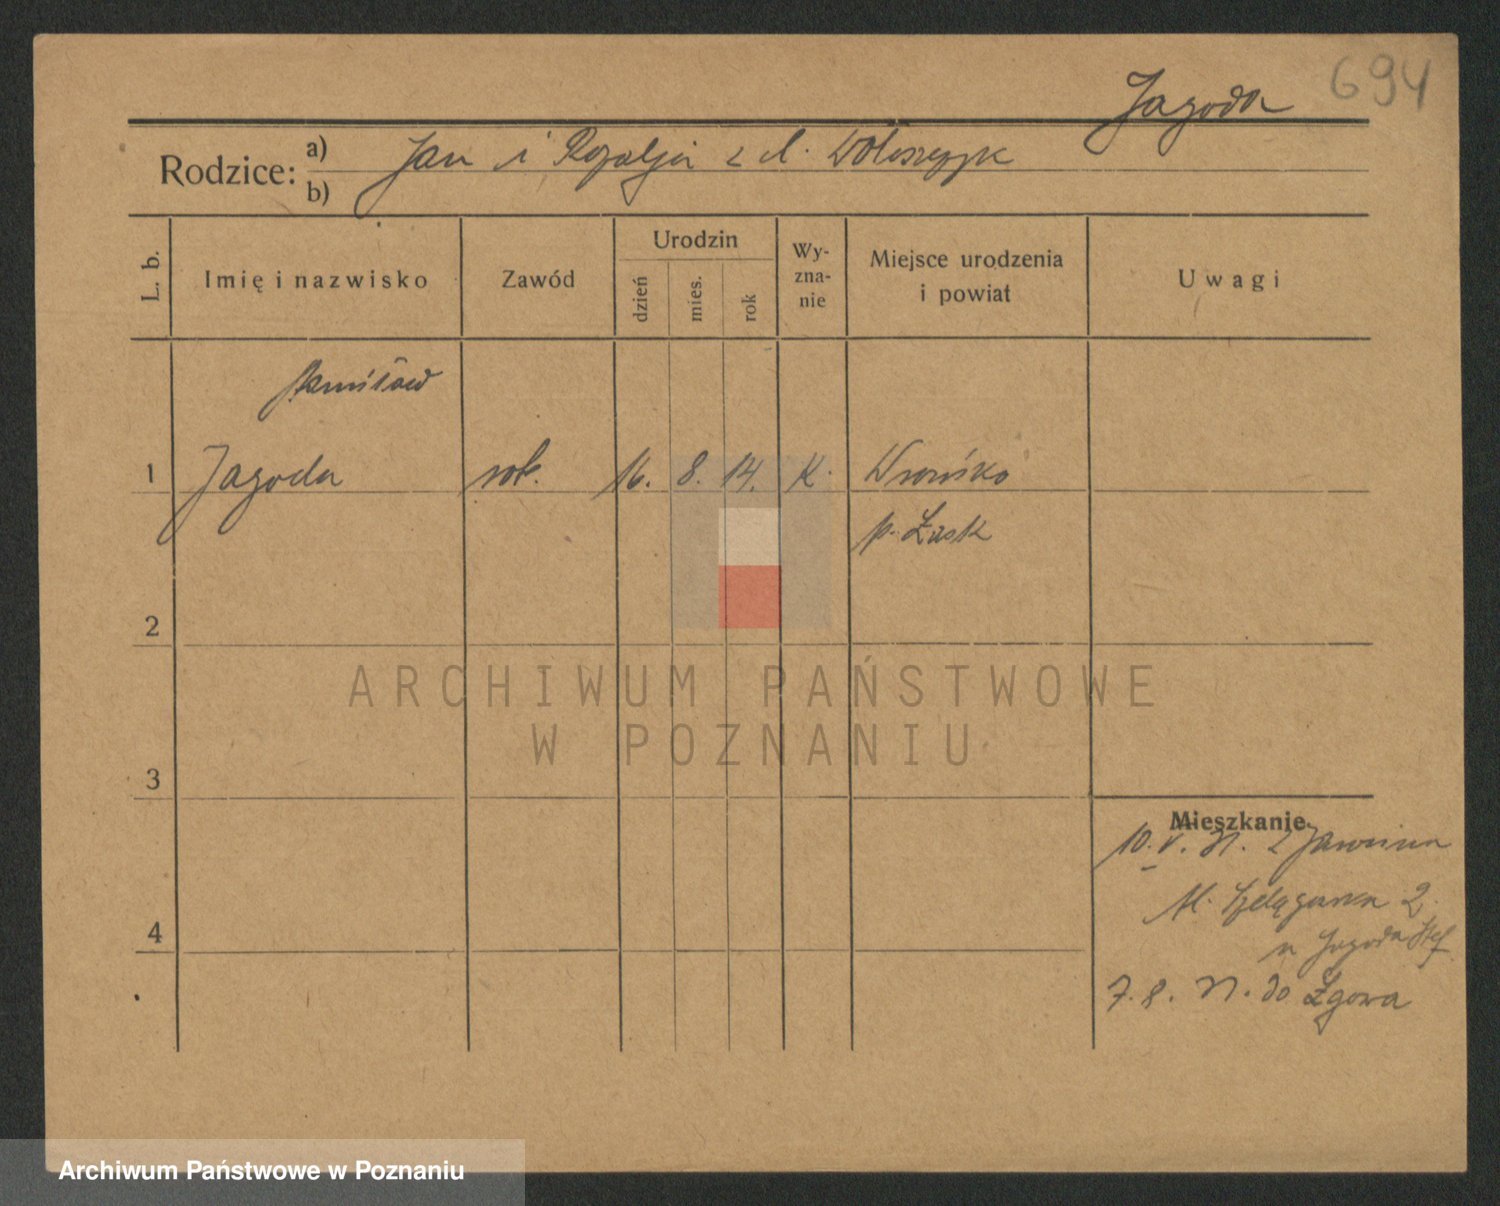 694
Jagoda
Rodzice: a) b) Jan i Rozalja z d. Wołoszczyk
L. b.
Imię i nazwisko
Zawód
Urodzin
dzień
mies.
rok
Wy-
zna-
nie
Miejsce urodzenia
i powiat
Uwagi
1
Jagoda
rob.
16. 8. 14.
K.
Wrońsko
p. Łask
2
3
4
ARCHIWUM PAŃSTWOWE
W POZNANIU
Mieszkanie
10. V. 31. z
Szelągowska 2.
u Jagoda Stef.
7. 8. 31. do Zgowa
Archiwum Państwowe w Poznaniu